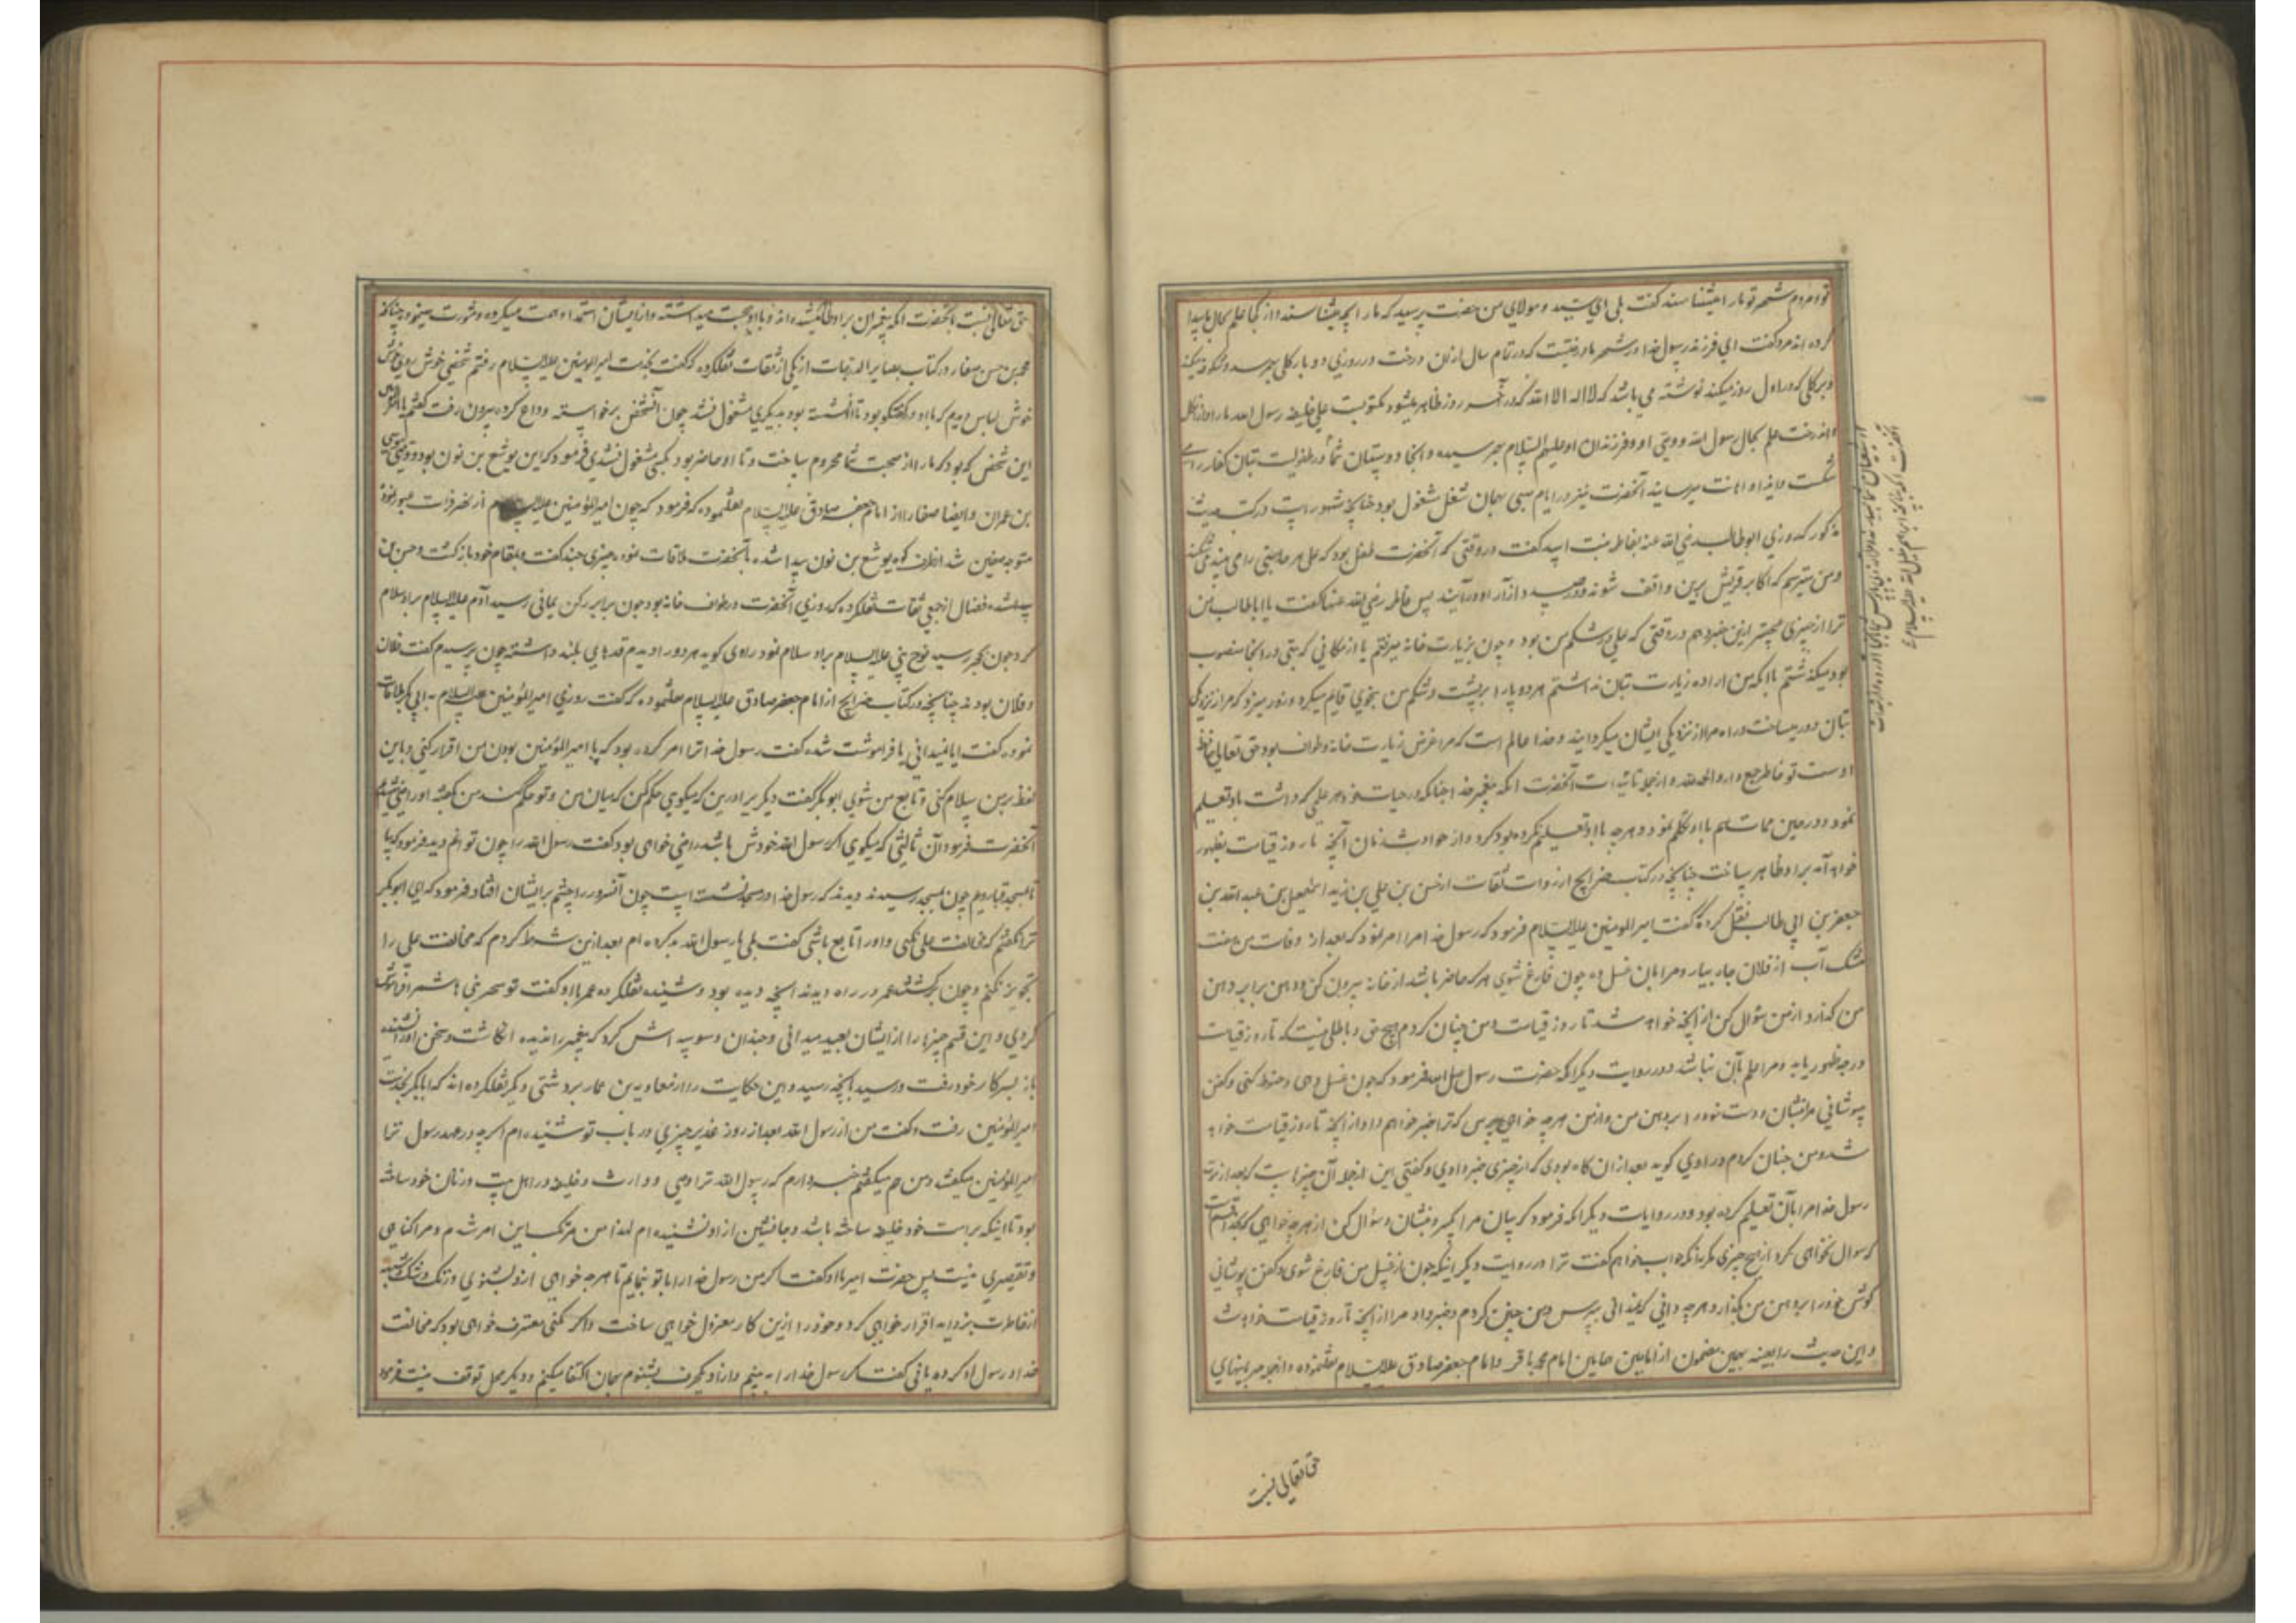 تو مردم شهر تو ما را میشناسند گفت بلی ای سید و مولای من حضرت پرسید که ما را بچه میشناسند و از کجا علم بحال ما پیدا
کرده اند مرد گفت ای فرزند رسول خدا در شهر ما درختیست که در تمام سال از آن درخت در روزی دو بار کلی بهر سد و شکوفه میکند
و بر کلی که در اول روز میکند نوشته می باشد که لا اله الا الله که در آخر روز ظاهر میشود مکتوبست علی خلیفه رسول الله ما را از آن کل
و آن درخت علم بحال رسول الله و وصی او و فرزندان او علیهم السلام بهم رسیده و آنجا دوستان شما در طفولیت بتان کفار را می
شکست و ایذا و اهانت میرسانید آنحضرت نیز در ایام صبی بهمان شغل مشغول بود چنانچه مشهور است در کتب حدیث
مذکور که روزی ابوطالب رضی الله عنه بفاطمه بنت اسد گفت در وقتی که آنحضرت طفل بود که علی هر جا بتی را می بیند می شکند
و من میترسم که اکابر قریش برین واقف شوند و در صدد آزار او در آیند پس فاطمه رضی الله عنها گفت یا اباطالب من
ترا از چیزی عجیبتر ازین خبر دهم در وقتی که علی در شکم من بود و چون بزیارت خانه میرفتم یا از مکانی که بتی در آنجا منصوب
بود میگذشتم با آنکه من اراده زیارت بتان نداشتم هر دو پا را بر پشت و شکم من بنحوی قایم میکرد و زور میزد که مرا از نزدیکی
بتان دور میساخت و راه مرا از نزدیکی ایشان میگردانید و خدا عالم است که مرا غرض زیارت خانه و طواف بود حق تعالی حافظ
اوست تو خاطر جمع دار و الحمد لله و از جمله تائیدات آنحضرت آنکه پیغمبر خدا چنانکه در حیات خود هر علمی که داشت باو تعلیم
نمود و در حین ممات هم با او تکلم نمود و هر چه باو تعلیم نکرده بود کرد و از حوادث زمان آنچه تا روز قیامت بظهور
خواهد آمد بر او ظاهر ساخت چنانچه در کتاب خرایج از روات ثقات از حسن بن علی بن زید اسمعیل بن عبد الله بن
جعفر بن ابی طالب نقل کرده که گفت امیر المومنین علیه السلام فرمود که رسول خدا مرا امر نمود که بعد از وفات من هفت
مشک آب از فلان چاه بیار و مرا بآن غسل ده چون فارغ شوی هر که حاضر باشد از خانه بیرون کن و دهن برابر دهن
من گذار و از من سؤال کن از آنچه خواهد شد تا روز قیامت و من چنان کردم هیچ حق و باطلی نیست که تا روز قیامت
درجه ظهور یابد و مرا علم بآن نباشد و در روایت دیگر آنکه حضرت رسول صلی الله فرمود که چون غسل دهی و حنوط کنی و کفن
پوشانی مرا بنشان و دست خود را بر دهن من و از من هر چه خواهی بپرس که ترا خبر خواهم داد از آنچه تا روز قیامت خواهد
شد و من چنان کردم و راوی گوید بعد از آن گاه بودی که از چیزی خبر دادی و گفتی این از جمله آن چیزهاست که بعد از موت
رسول خدا مرا بآن تعلیم کرده بود و در روایات دیگر آنکه فرمود گریبان مرا بگیر و بنشان و سؤال کن از هر چه خواهی که بخدا قسم است
که سوال نخواهی کرد از هیچ چیزی مگر بآنکه جواب خواهم گفت ترا و در روایت دیگر اینکه چون از غسل من فارغ شوی و کفن پوشانی
گوش خود را بر دهن من گذار و هر چه دانی که ندانی بپرس و من چنین کردم و خبر داد مرا از آنچه تا روز قیامت خواهد شد
و این حدیث را بعینه بهمین مضمون از امامین همامین امام محمد باقر و امام جعفر صادق علیه السلام نقل نموده و از جمله مهربانیهای
حق تعالی نسبت
حق تعالی نسبت بآنحضرت آنکه پیغمبران بر او ظاهر میشده اند و با او صحبت میداشته و از ایشان استمداد همت میکرده و مشورت مینمود چنانکه
محمد بن حسن صفار در کتاب بصایر الدرجات از یکی از ثقات نقلکرده که گفت بخدمت امیر المومنین علیه السلام رفتم شخصی خوش روی خوش موی
خوش لباس دیدم که با او در گفتگو بود تا او نشسته بود بدیگری مشغول نشد چون آنشخص برخواسته وداع کرده بیرون رفت گفتم یا امیر المومنین
این شخص که بود که ما را از صحبت شما محروم ساخت و تا او حاضر بود بکسی مشغول نشدی فرمود که این یوشع بن نون بود وصی موسی
بن عمران و ایضا صفار از امام جعفر صادق علیه السلام نقلنموده که فرمود که چون امیر المؤمنین علیه السلام از نهر فرات عبور نموده
متوجه صفین شد از طرف کوه یوشع بن نون پیدا شده بآنحضرت ملاقات نموده چیزی چند گفت و بمقام خود بازگشت و حسن بن
فضال از جمعی ثقات نقلکرده که روزی آنحضرت در طواف خانه بود چون برابر رکن یمانی رسید آدم علیه السلام بر او سلام
کرد چون بحجر رسید نوح نبی علیه السلام بر او سلام نمود راوی گوید هر دو را دیدم قدهای بلند داشتند چون پرسیدم گفت فلان
و فلان بودند چنانچه در کتاب خرایج از امام جعفر صادق علیه السلام نقلنموده که گفت روزی امیر المؤمنین علیه السلام به ابی بکر ملاقات
نموده گفت آیا نمیدانی یا فراموشت شده گفت رسول خدا ترا امر کرده بود که با امیر المؤمنین بودن من اقرار کنی و باین
لفظ بر من سلام کنی و تابع من شوی ابو بکر گفت دیگری را درین که میگوی حکم کن که میان من و تو حکم کند من گفته او راضی میشوم
آنحضرت فرمود آن ثالثی که میگوی اگر رسول الله خودش باشد راضی خواهی بود گفت رسول الله را چون توانم دید فرمود که بیا
تا بمسجد قبا رویم چون بمسجد رسیدند دیدند که رسول خدا در مسجد نشسته است چون آنسرور را چشم بر ایشان افتاد فرمود که ای ابو بکر
ترا نگفتم که مخالفت علی نکنی و او را تابع باشی گفت بلی یا رسول الله بد کرده ام بعد ازین شرط کردم که مخالفت علی را
تجویز نکنم و چون برگشتند عمر در راه دیدند آنچه دیده بود و شنیده نقلکرده عمر با او گفت تو سحر بنی هاشم را فراموش
کردی و این قسم چیزها را از ایشان بعید میدانی و چندان وسوسه اش کرد که پیغمبر را ندیده انگاشت و سخن او را نشنیده
باز بسر کار خود رفت و رسید بآنچه رسید و این حکایت را از معاویه بن عمار بر دشتی دیگر نقلکرده اند که ابابکر بخدمت
امیر المؤمنین رفت و گفت من از رسول الله بعد از روز غدیر چیزی در باب تو نشنیده ام اگر چه در عهد رسول ترا
امیر المؤمنین میگفتند و من هم میگفتم خبر دارم که رسول الله ترا وصی و وارث و خلیفه در اهل بیت و زنان خود ساخته
بود تا اینکه بر امت خود خلیفه ساخته باشد و جانشین از او نشنیده ام لهذا من مرتکب این امر شدم و مرا گناهی
و تقصیری نیست پس حضرت امیر با او گفت اگر من رسول خدا را با تو بنمایم تا هر چه خواهی ازو بشنوی و زنک و شک و شبهه
از خاطرت بزداید اقرار خواهی کرد و خود را ازین کار معزول خواهی ساخت و اگر نکنی معترف خواهی بود که مخالفت
خدا و رسول او کرده یا نی گفت اگر رسول خدا را به بینم و از او یکحرف بشنوم بهمان اکتفا میکنم و دیگر محل توقف نیست فرمود